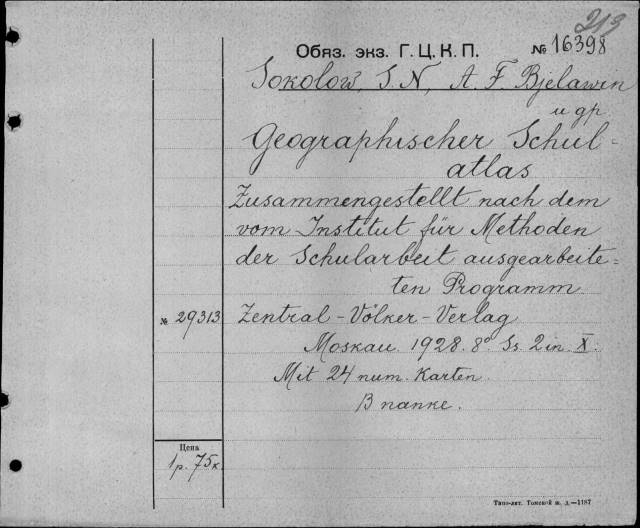 213
Обяз. экз. Г. Ц. К. П. № 16398
Sokolow, S. N, A. F Bjelawin
и др
Geographischer Schul=
atlas
Zusammengestellt nach dem
vom Institut für Methoden
der Schularbeit ausgearbeite=
ten Programm
№ 29313 Zentral-Völker-Verlag
Moskau. 1928. 8° Ss. 2 in. X.
Mit 24 num. Karten.
В папке.
Цена
1 р. 75 к.
Типо-лит. Томской ж. д.—1187